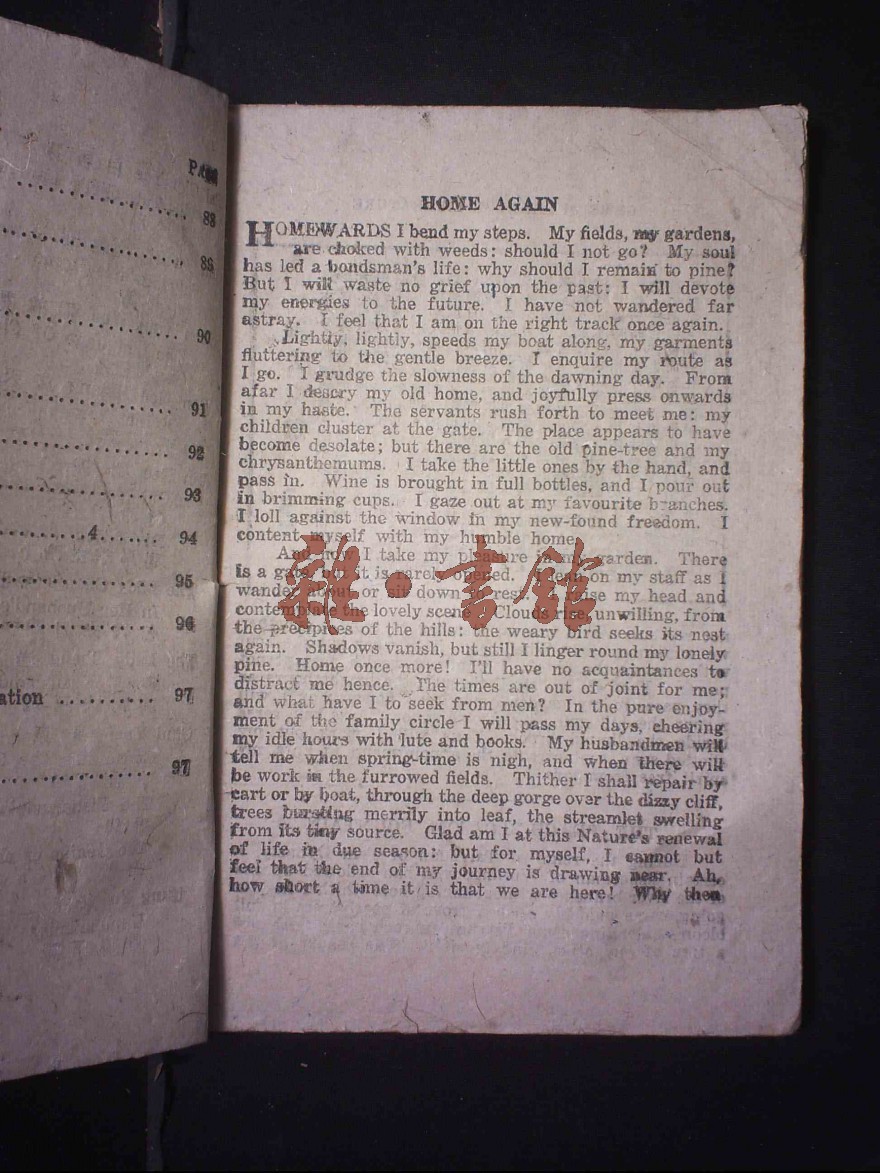 PAGE
88
88
90
91
92
93
4
94
95
96
ation .......... 97
97
HOME AGAIN
HOMEWARDS I bend my steps. My fields, my gardens,
are choked with weeds: should I not go? My soul
has led a bondsman's life: why should I remain to pine?
But I will waste no grief upon the past: I will devote
my energies to the future. I have not wandered far
astray. I feel that I am on the right track once again.
Lightly, lightly, speeds my boat along, my garments
fluttering to the gentle breeze. I enquire my route as
I go. I grudge the slowness of the dawning day. From
afar I descry my old home, and joyfully press onwards
in my haste. The servants rush forth to meet me: my
children cluster at the gate. The place appears to have
become desolate; but there are the old pine-tree and my
chrysanthemums. I take the little ones by the hand, and
pass in. Wine is brought in full bottles, and I pour out
in brimming cups. I gaze out at my favourite branches.
I loll against the window in my new-found freedom. I
content myself with my humble home
And now I take my pleasure in my garden. There
is a gate, but it is rarely opened. I lean on my staff as I
wander about or sit down to rest. I raise my head and
contemplate the lovely scene. Clouds rise, unwilling, from
the precipices of the hills: the weary bird seeks its nest
again. Shadows vanish, but still I linger round my lonely
pine. Home once more! I'll have no acquaintances to
distract me hence. The times are out of joint for me;
and what have I to seek from men? In the pure enjoy-
ment of the family circle I will pass my days, cheering
my idle hours with lute and books. My husbandmen will
tell me when spring-time is nigh, and when there will
be work in the furrowed fields. Thither I shall repair by
cart or by boat, through the deep gorge over the dizzy cliff,
trees bursting merrily into leaf, the streamlet swelling
from its tiny source. Glad am I at this Nature's renewal
of life in due season: but for myself, I cannot but
feel that the end of my journey is drawing near. Ah,
how short a time it is that we are here! Why then
雜·書館